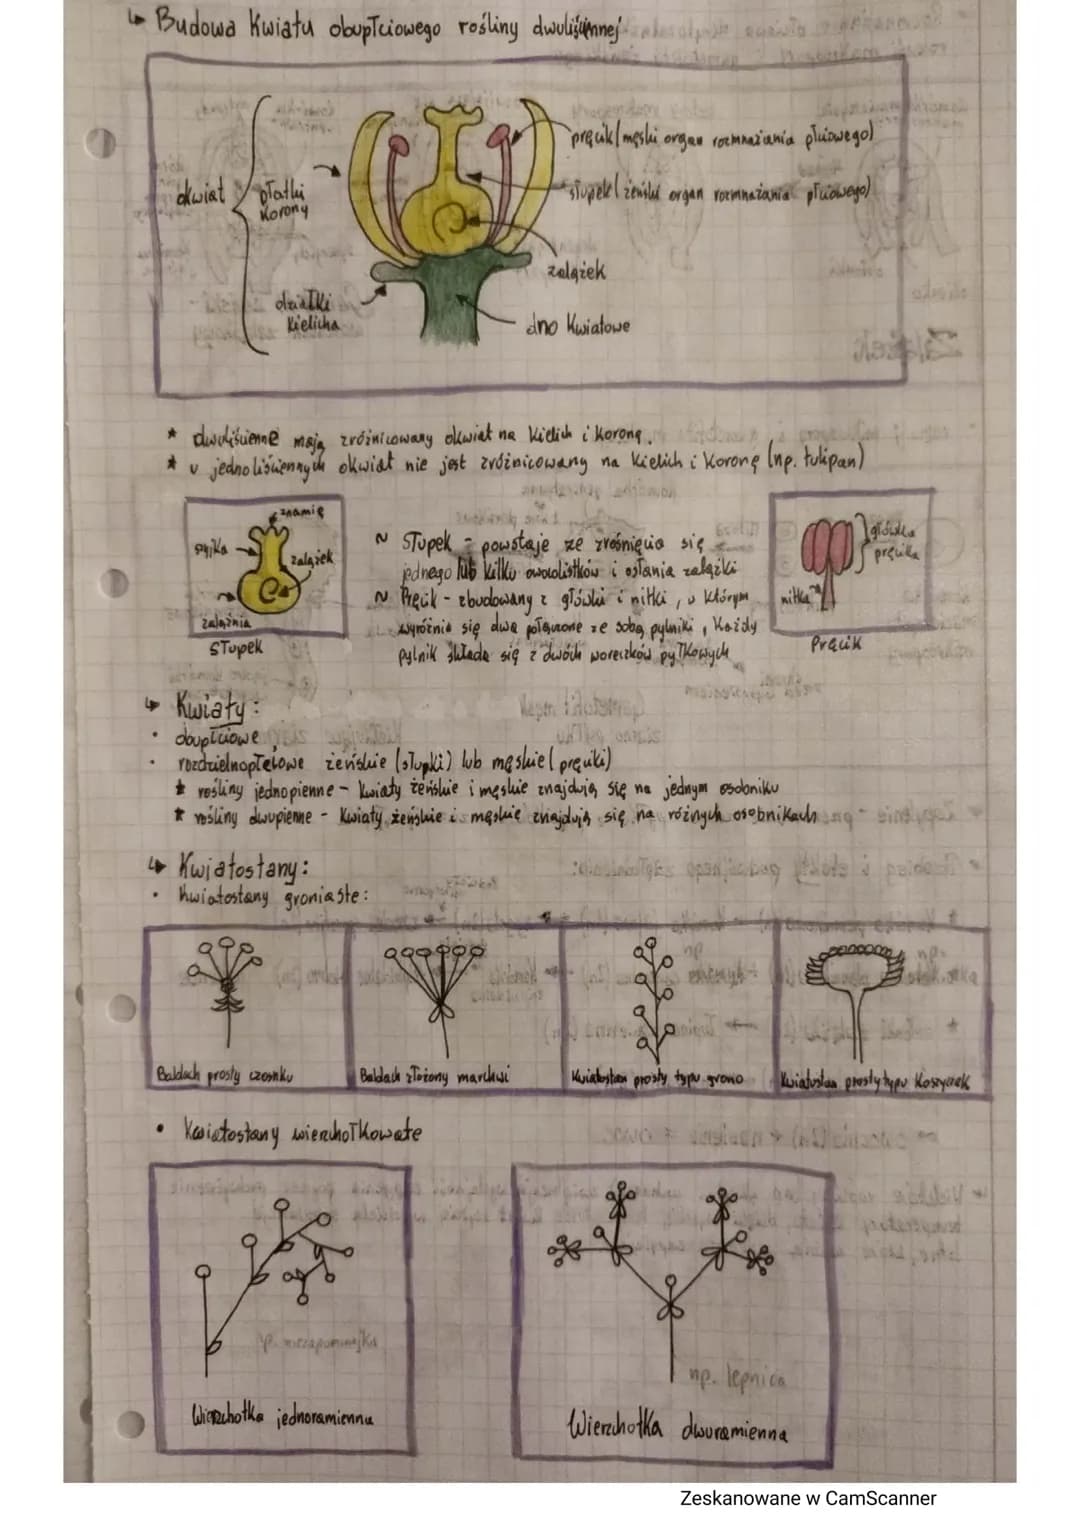 ↳ Budowa kwiatu obupłciowego rośliny dwuliściennej
okwiat
płatki
korony
działki
kielicha
pręcik (męski organ rozmnażania płciowego)
słupek (żeński organ rozmnażania płciowego)
zalążek
dno kwiatowe
* dwuliścienne mają zróżnicowany okwiat na kielich i koronę.
* u jednoliściennych okwiat nie jest zróżnicowany na kielich i koronę (np. tulipan)
znamię
szyjka
zalążek
zalążnia
Słupek
~ Słupek - powstaje ze zrośnięcia się
jednego lub kilku owocolistków i osłania zalążki
~ Pręcik - zbudowany z główki i nitki, u którym
wyróżnia się dwa połączone ze sobą pylniki, każdy
pylnik składa się z dwóch woreczków pyłkowych
główka
pręcika
nitka
Pręcik
↳ Kwiaty:
• obupłciowe
• rozdzielnopłciowe żeńskie (słupki) lub męskie (pręciki)
* rośliny jednopienne - kwiaty żeńskie i męskie znajdują się na jednym osobniku
* rośliny dwupienne - kwiaty żeńskie i męskie znajdują się na różnych osobnikach
↳ Kwiatostany:
• kwiatostany groniaste:
Baldach prosty czosnku
Baldach złożony marchwi
Kwiatostan prosty typu grono
Kwiatostan prosty typu koszyczek
• Kwiatostany wierzchołkowate
Wierzchotka jednoramienna
np. lepnica
Wierzchotka dwuramienna
Zeskanowane w CamScanner